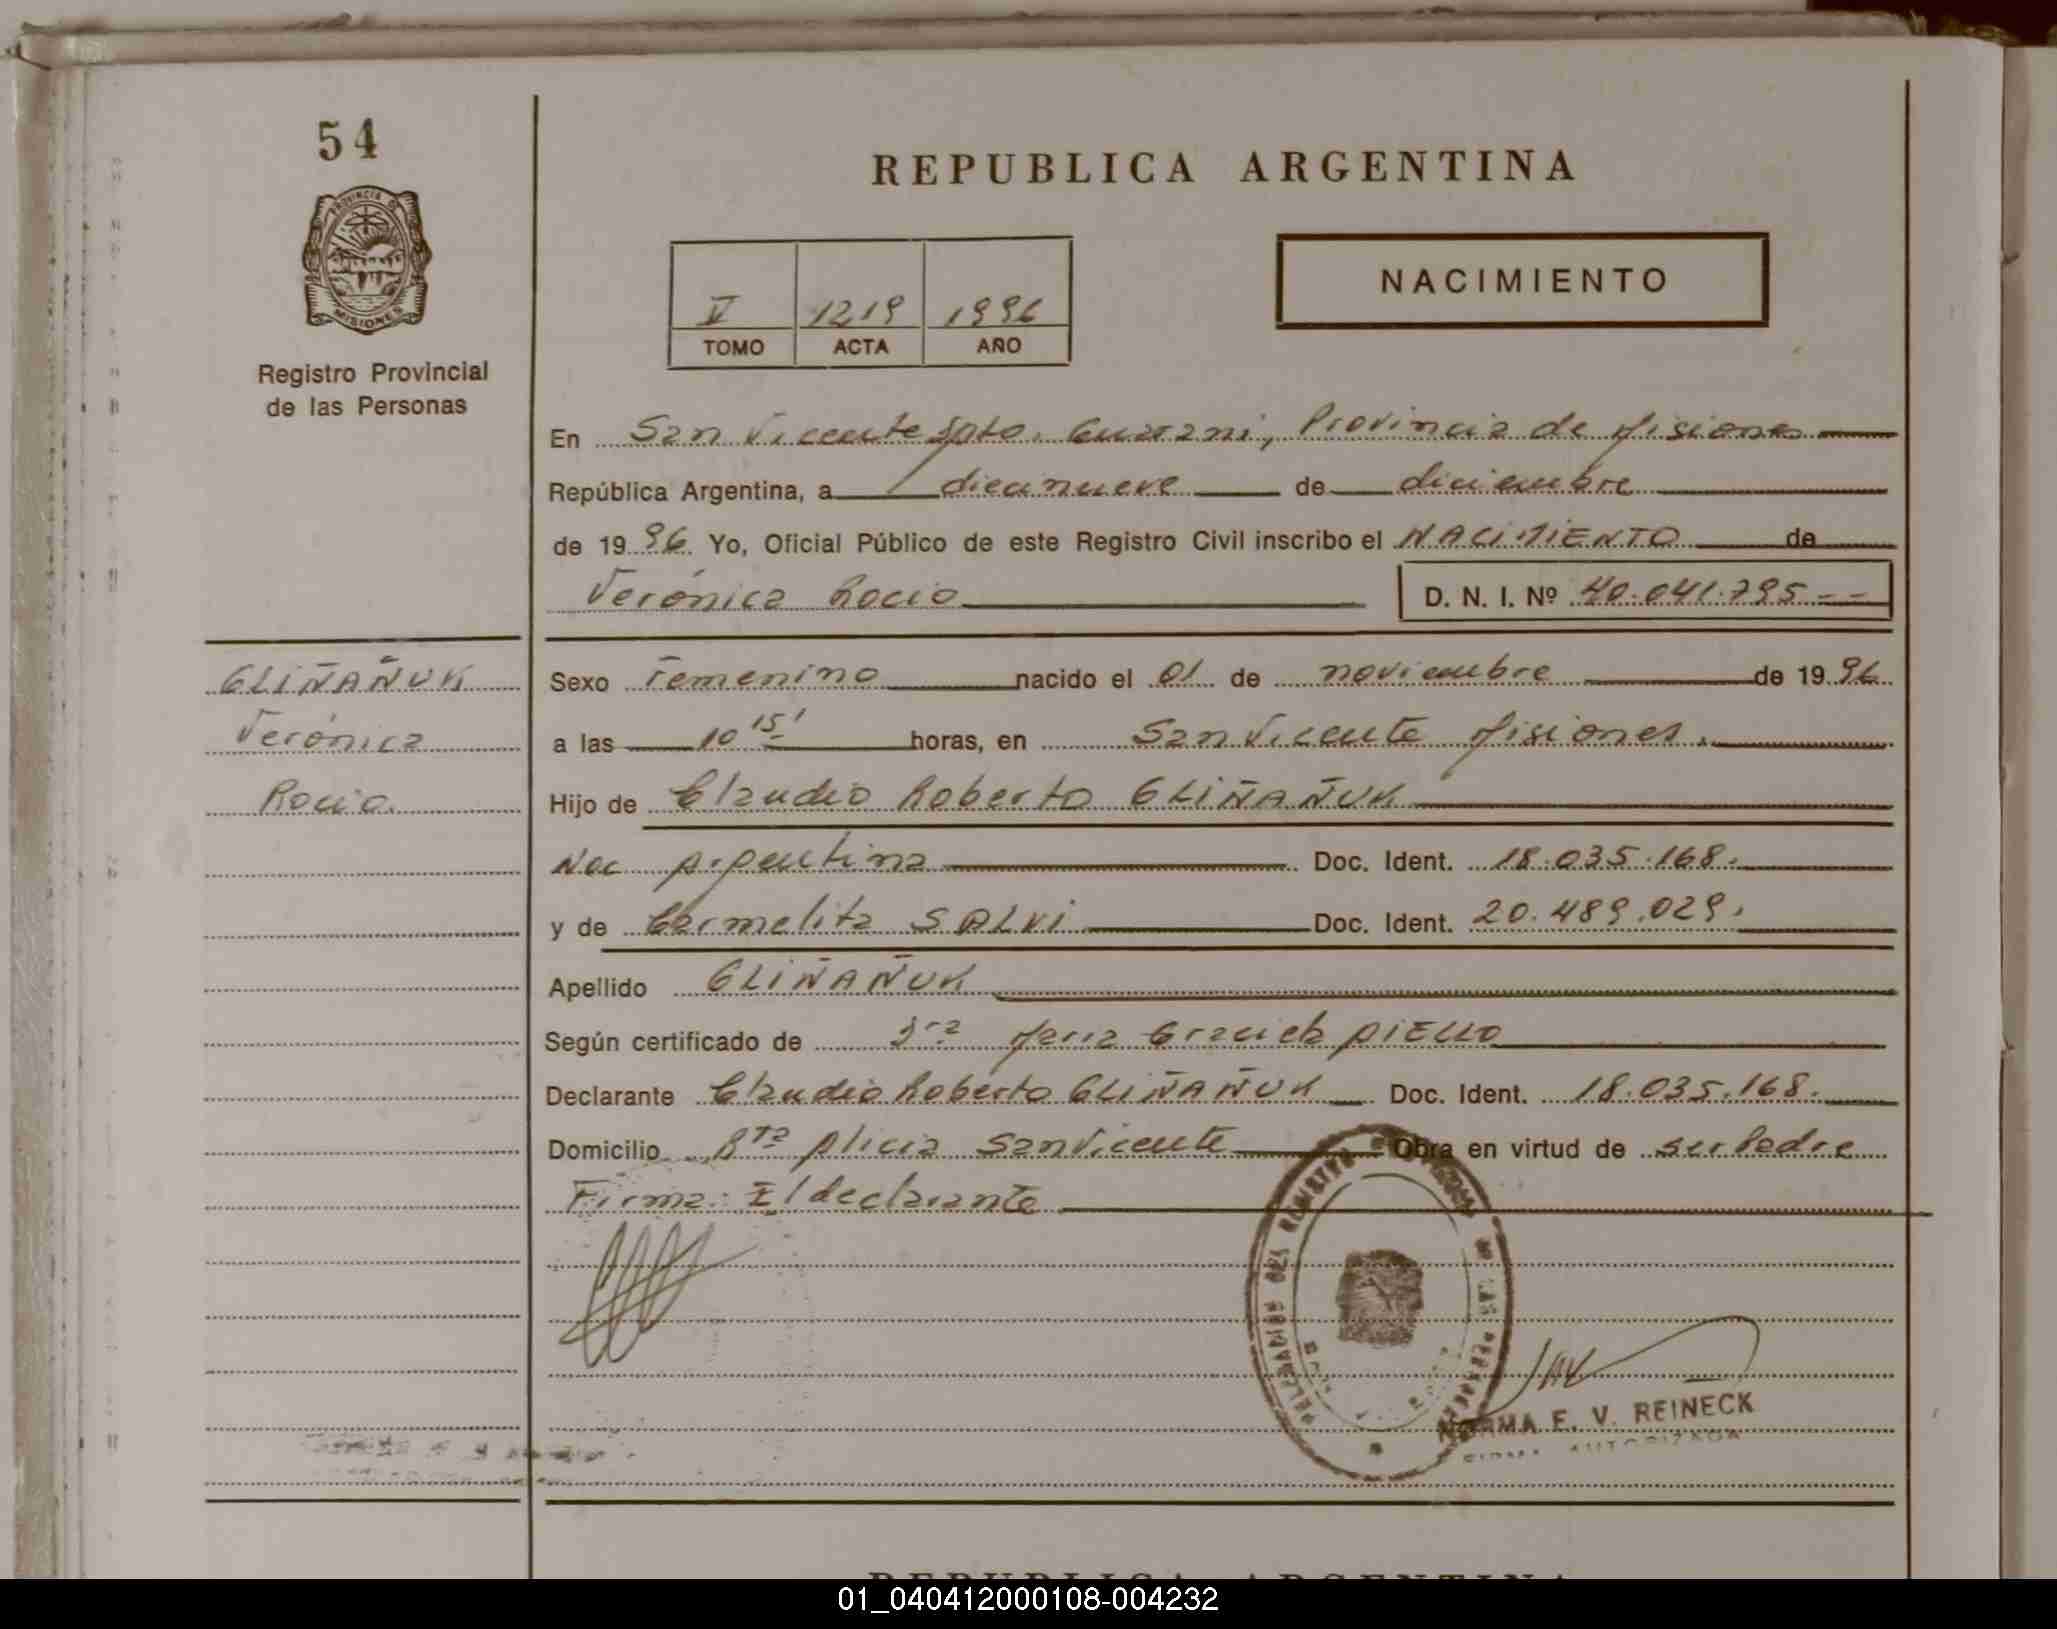 54
PROVINCIA DE
MISIONES
Registro Provincial
de las Personas
REPUBLICA ARGENTINA
V 1219 1996
TOMO ACTA AÑO
NACIMIENTO
En San Vicente Dpto. Guarani, Provincia de Misiones
República Argentina, a diecinueve de diciembre
de 1996 Yo, Oficial Público de este Registro Civil inscribo el NACIMIENTO de
Verónica Rocio D. N. I. Nº 40.041.795--
GLIÑAÑUK
Verónica
Rocio.
Sexo Femenino nacido el 01 de noviembre de 1996
a las 10 15' horas, en San Vicente Misiones.
Hijo de Claudio Roberto GLIÑAÑUK
Nac Argentina Doc. Ident. 18.035.168.
y de Carmelita SALVI Doc. Ident. 20.489.029.
Apellido GLIÑAÑUK
Según certificado de Dra Maria Graciela AIELLO
Declarante Claudio Roberto GLIÑAÑUK Doc. Ident. 18.035.168.
Domicilio Rta Alicia San Vicente Obra en virtud de ser Padre
Firma: El declarante
DEL REGISTRO DE LAS PERSONAS
NORMA E. V. REINECK
FIRMA AUTORIZADA
REPUBLICA ARGENTINA
01_040412000108-004232